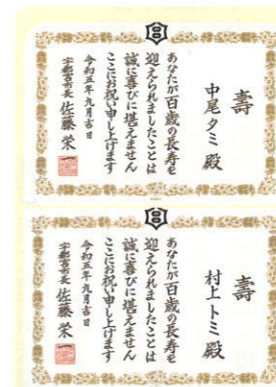 壽
中尾タミ 殿
あなたが百歳の長寿を
迎えられましたことは
誠に喜びに堪えません
ここにお祝い申し上げます
令和五年九月吉日
宇都宮市長 佐藤栄一
壽
村上トミ 殿
あなたが百歳の長寿を
迎えられましたことは
誠に喜びに堪えません
ここにお祝い申し上げます
令和五年九月吉日
宇都宮市長 佐藤栄一